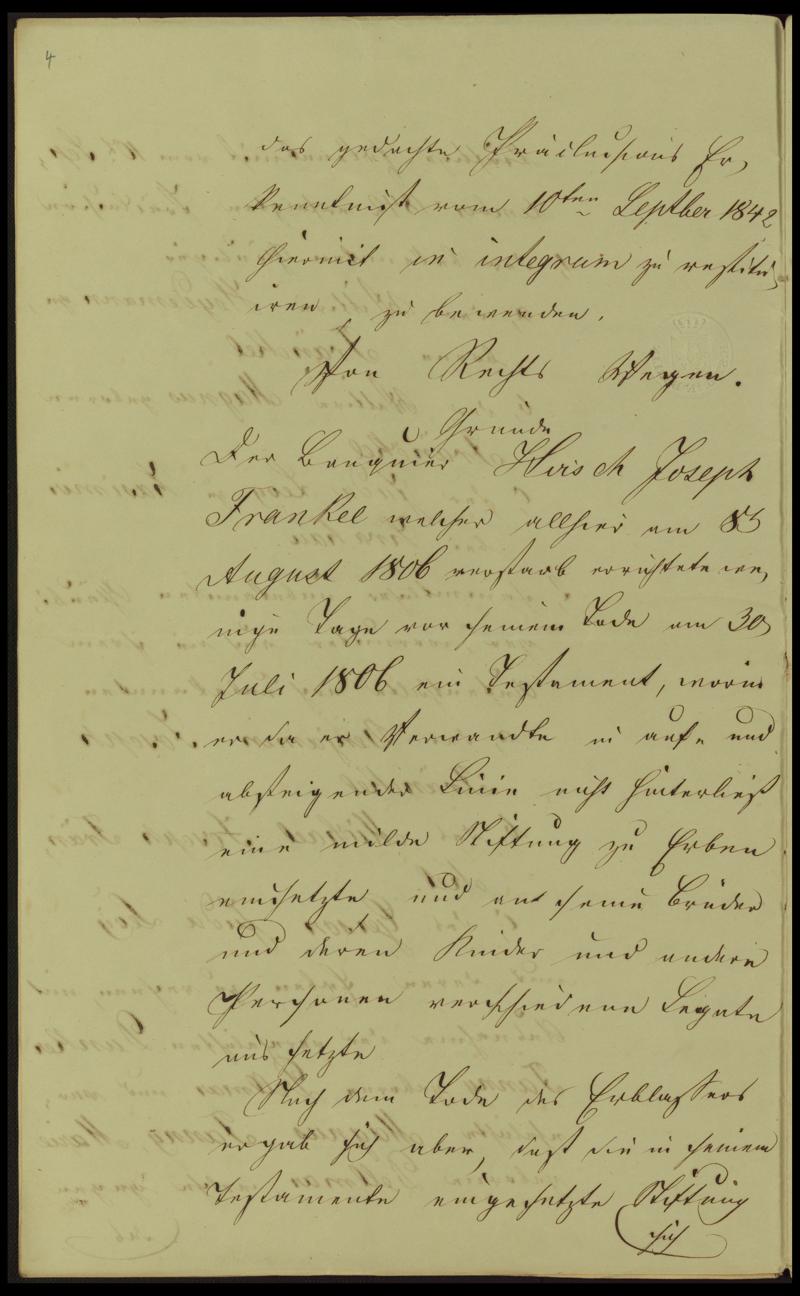 4
das gedachte Präclusions Er,
kenntniß vom 10ten Septber 1842
hiermit in integrum zu restitu,
iren zu bewenden.
Von Rechts Wegen.
Gründe
Der Banquier Hirsch Joseph
Frankel welcher allhier am 8t
August 1806 verstarb errichtete we,
nige Tage vor seinem Tode am 30
Juli 1806 ein Testament, worin
er da er Verwandte in auf- und
absteigender Linie nicht hinterließ
eine milde Stiftung zu Erben
einsetzte und an seine Brüder
und deren Kinder und andere
Personen verschiedene Legate
aussetzte
Nach dem Tode des Erblassers
ergab sich aber, daß die in seinem
Testamente eingesetzte Stiftung
sich